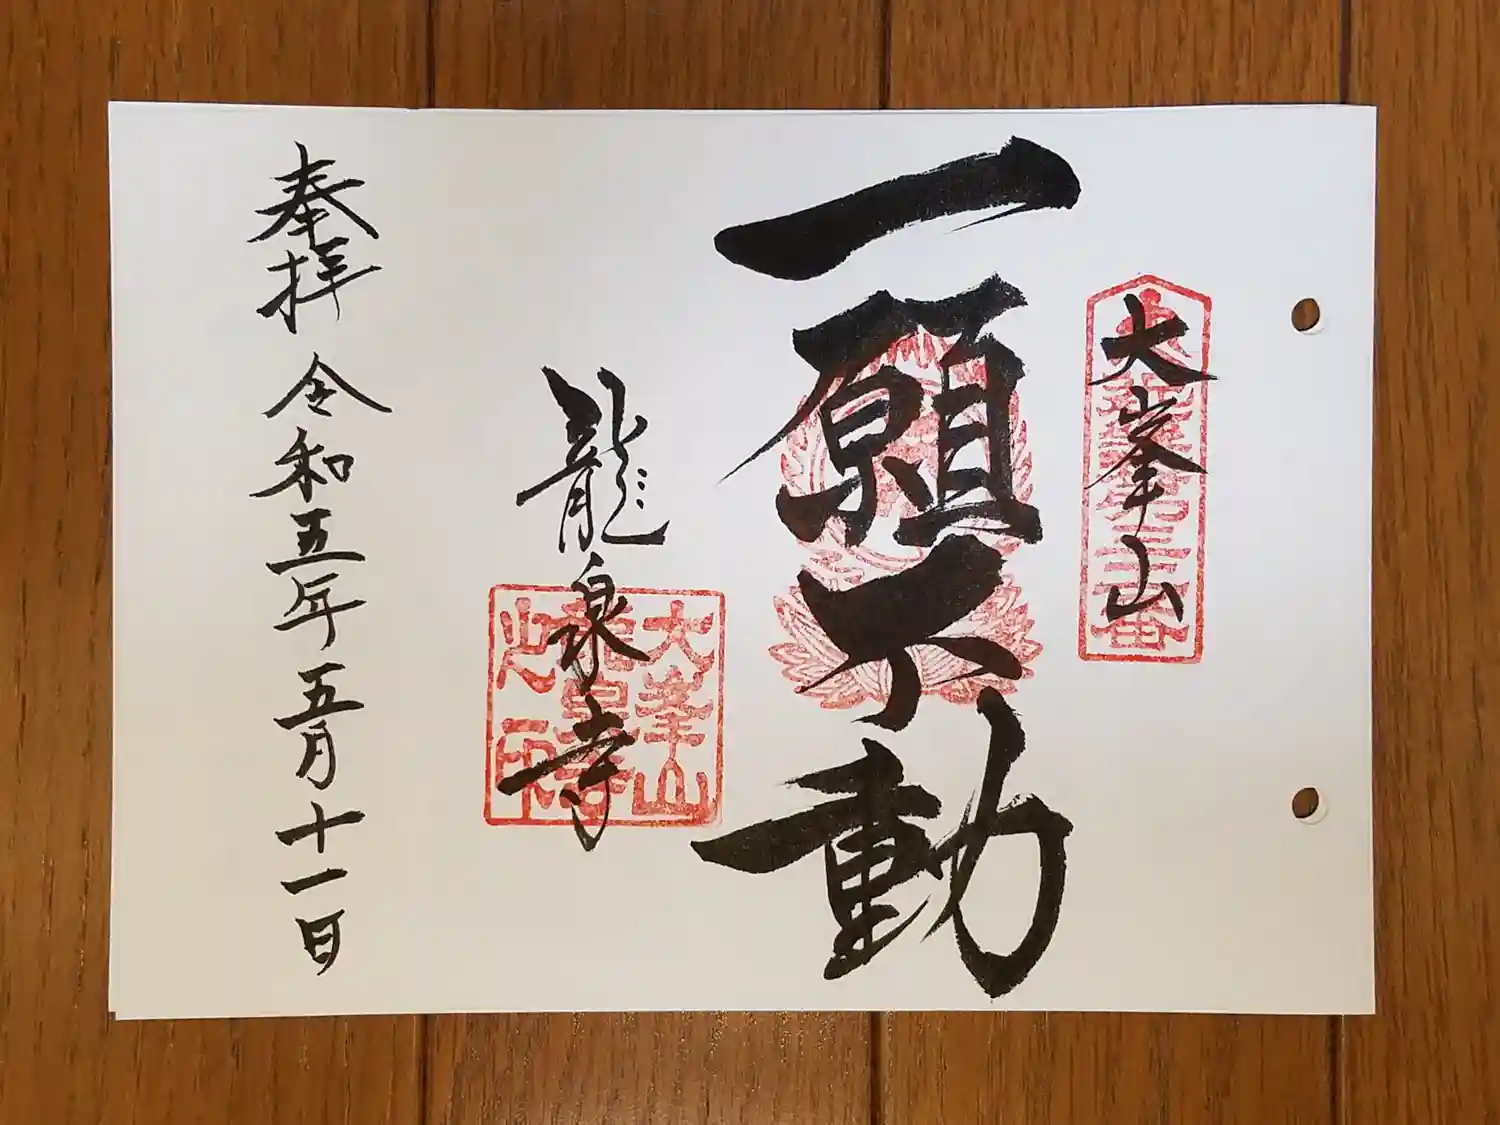 大峯山
一願不動
龍泉寺
大峯山
龍泉寺
之印
奉拝 令和五年五月十一日